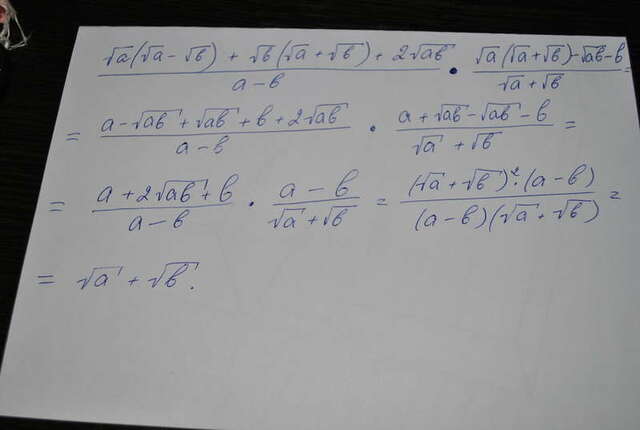 (√a(√a − √b) + √b(√a + √b) + 2√ab)/(a − b) · (√a(√a + √b) − √ab − b)/(√a + √b) =
= (a − √ab + √ab + b + 2√ab)/(a − b) · (a + √ab − √ab − b)/(√a + √b) =
= (a + 2√ab + b)/(a − b) · (a − b)/(√a + √b) = ((√a + √b)²·(a − b))/((a − b)(√a + √b)) =
= √a + √b.